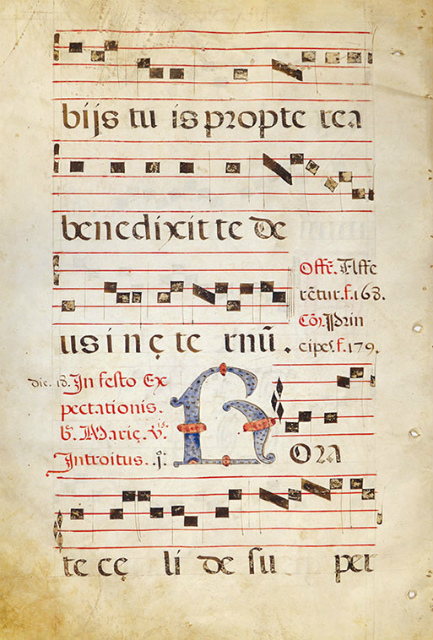 bijs tu is propte rea
benedixit te de
us in ę te rnũ.
Offẽ. Affe
rẽtur. f. 168.
Cõ. Prin
cipes. f. 179.
dic. 18. In festo Ex
pectationis.
b. Marię. V.
Introitus.
R ora
te cę li de su per